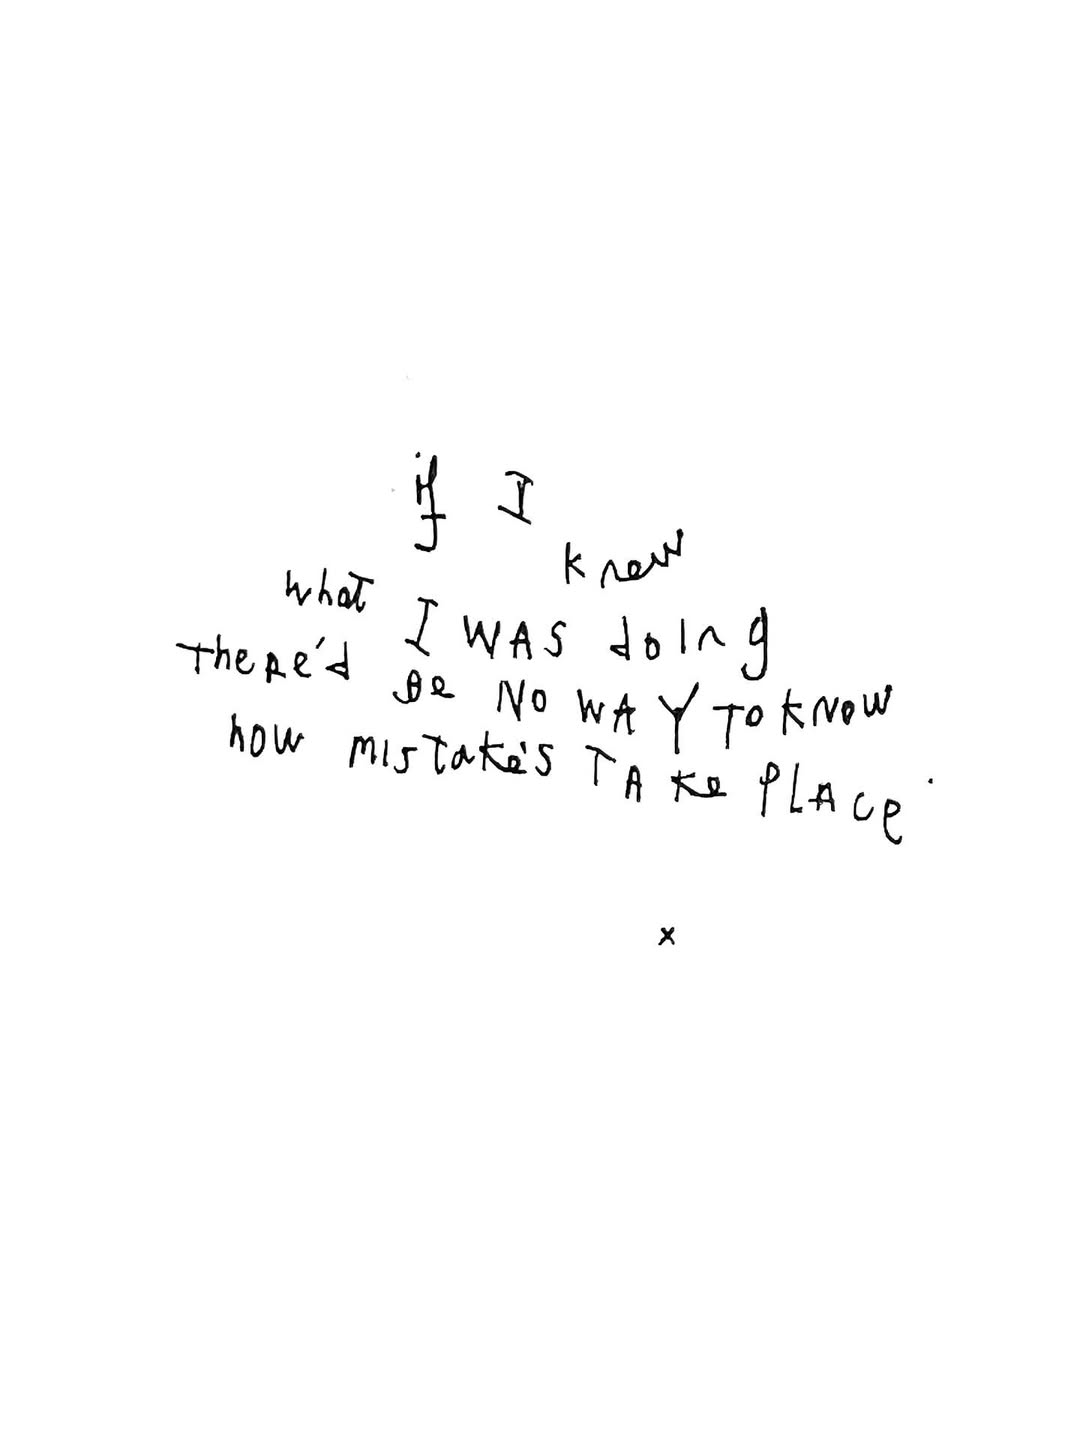 if I
knew
what I WAS doIng
theRe'd Be NO WAY TO KNOW
how MISTake's TAKe PLACe.
x